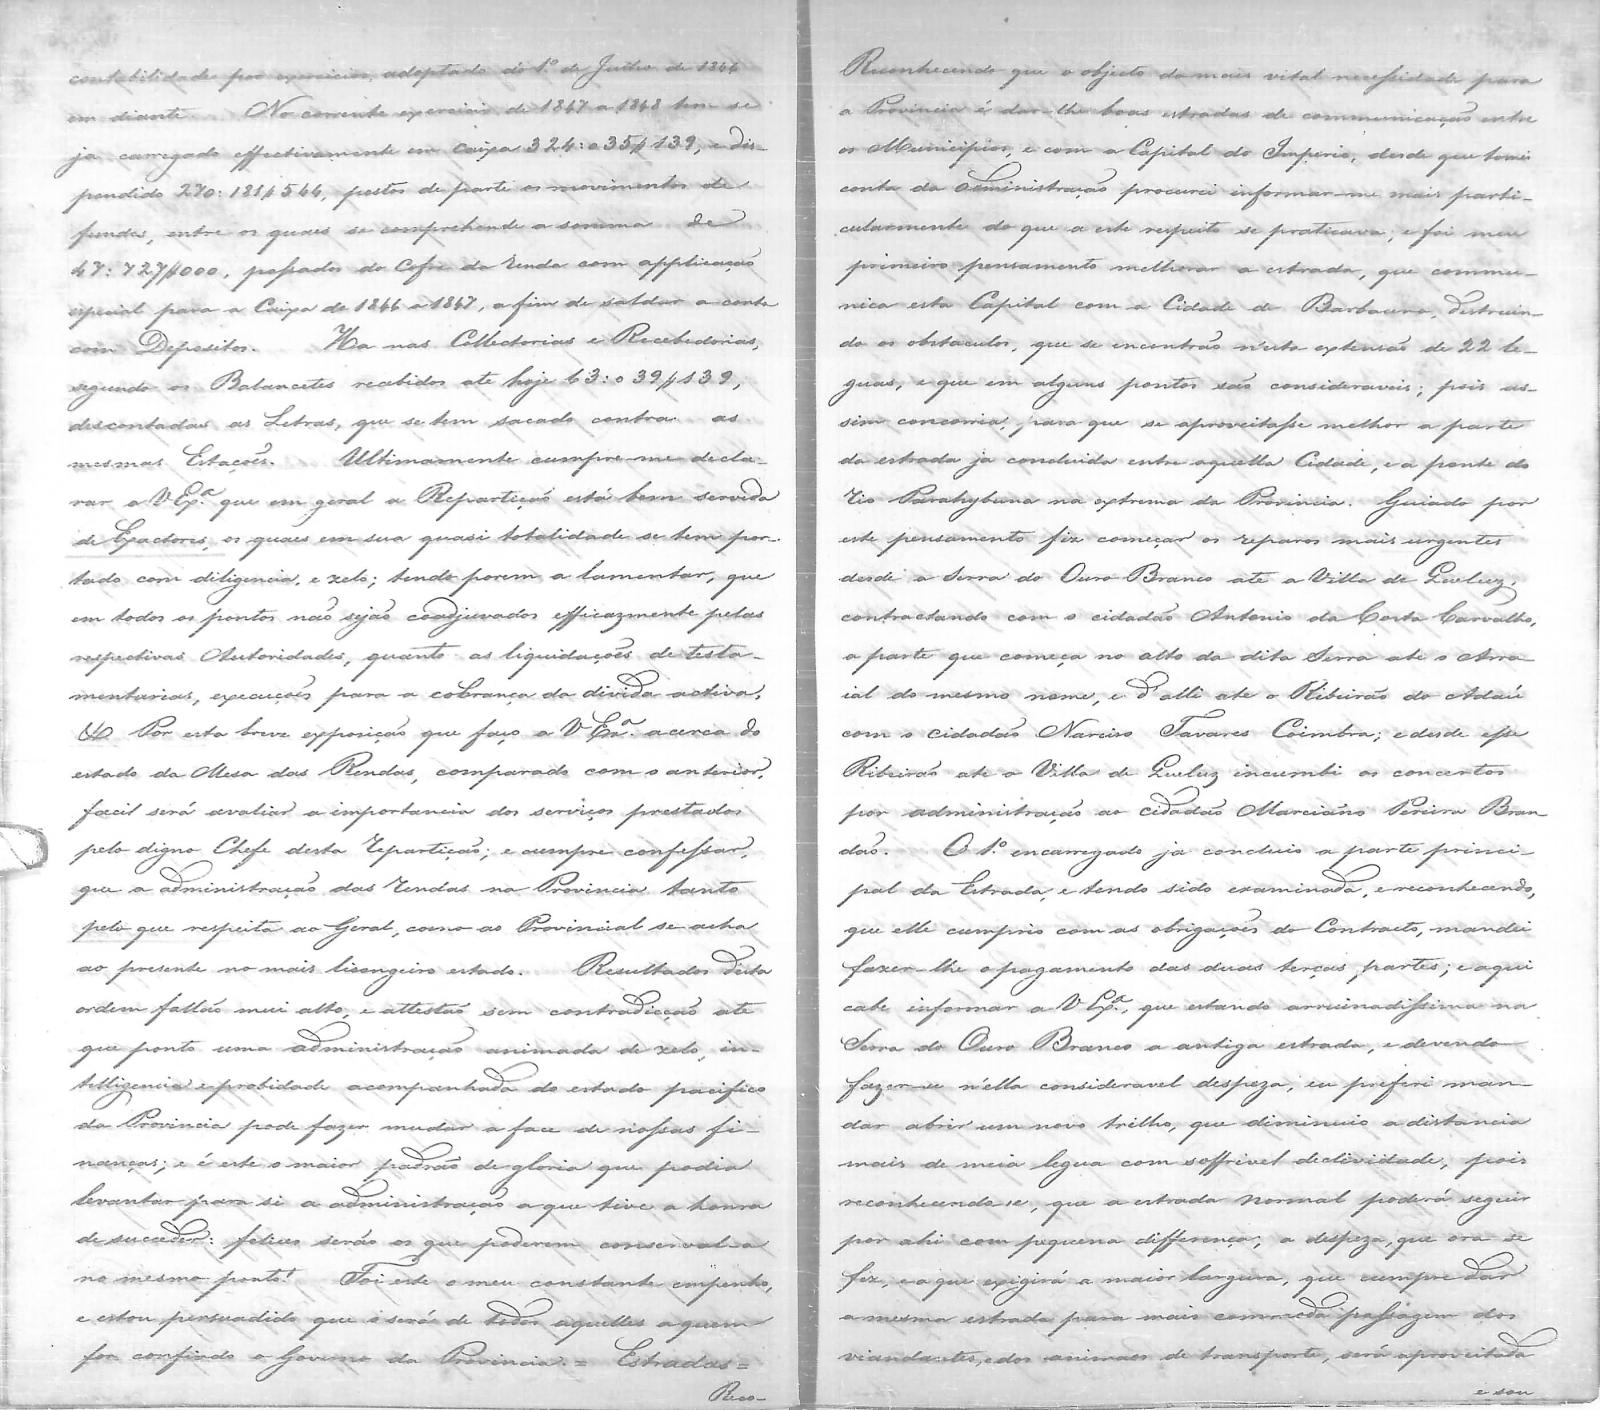 contabilidade por exercicios, adoptado do 1.º de Julho de 1844
em diante. No corrente exercicio de 1847 a 1848 tem-se
ja carregado effectivamente em caixa 324:035$139, e dis-
pendido 270:181$544, postos de parte os movimentos de
fundos, entre os quaes se comprehende a somma de
47:727$000, passados do Cofre da Renda com applicação
especial para a Caixa de 1846 a 1847, a fim de saldar a conta
com Depositos. Ha nas Collectorias e Recebedorias,
segundo os Balancetes recebidos ate hoje 63:039$139,
descontadas as Letras, que se tem sacado contra as
mesmas Estações. Ultimamente cumpre-me decla-
rar a V Ex.ª que em geral a Repartição está bem servida
de Exactores, os quaes em sua quasi totalidade se tem por-
tado com diligencia, e zelo; tendo porem a lamentar, que
em todos os pontos não sejão coadjuvados efficazmente pelas
respectivas Autoridades, quanto as liquidações de testa-
mentarias, execuções para a cobrança da divida activa,
&. Por esta breve exposição que faço a V Ex.ª acerca do
estado da Mesa das Rendas, comparado com o anterior,
facil será avaliar a importancia dos serviços prestados
pelo digno Chefe desta Repartição; e cumpre confessar,
que a administração das Rendas na Provincia tanto
pelo que respeita ao Geral, como ao Provincial se acha
ao presente no mais lisongeiro estado. Resultados desta
ordem fallão mui alto, e attestão sem contradicção ate
que ponto uma administração animada de zelo, in-
telligencia e probidade acompanhada do estado pacifico
da Provincia pode fazer mudar a face de nossas fi-
nanças; e é este o maior padrão de gloria que podia
levantar para si a administração a que tive a honra
de succeder: felices serão os que poderem conserval-a
no mesmo ponto! Foi este o meu constante empenho,
e estou persuadido que o será de todos aquelles a quem
for confiado o Governo da Provincia. = Estradas =
Reco-
Reconhecendo que o objecto da mais vital necessidade para
a Provincia é dar-lhe boas estradas de communicação entre
os Municipios, e com a Capital do Imperio, desde que tomei
conta da administração procurei informar-me mais parti-
cularmente do que a este respeito se praticava; e foi meu
primeiro pensamento melhorar a estrada, que commu-
nica esta Capital com a Cidade de Barbacena, destruin-
do os obstaculos, que se encontrão n'esta extensão de 22 le-
guas, e que em alguns pontos são consideraveis; pois as-
sim concorria, para que se aproveitasse melhor a parte
da estrada ja concluida entre aquella Cidade, e a ponte do
Rio Parahybuna na extrema da Provincia. Guiado por
este pensamento fiz começar os reparos mais urgentes
desde a Serra do Ouro Branco ate a Villa de Queluz,
contractando com o cidadão Antonio da Costa Carvalho,
a parte que começa no alto da dita Serra ate o Arra-
ial do mesmo nome, e d'alli ate o Ribeirão do Adaú
com o cidadão Narciso Tavares Coimbra; e desde esse
Ribeirão ate a Villa de Queluz incumbi os concertos
por administração ao cidadão Marciano Pereira Bran-
dão. O 1.º encarregado ja concluio a parte princi-
pal da Estrada, e tendo sido examinada, e reconhecendo,
que elle cumprio com as obrigações do Contracto, mandei
fazer-lhe o pagamento das duas terças partes; e aqui
cabe informar a V Ex.ª, que estando arruinadissima na
Serra do Ouro Branco a antiga estrada, e devendo
fazer-se n'ella consideravel despeza, eu preferi man-
dar abrir um novo trilho, que diminuio a distancia
mais de meia legua com soffrivel declividade, pois
reconhecendo-se, que a estrada normal poderá seguir
por ahi com pequena differença, a despeza, que ora se
fez, e a que exigirá a maior largura, que cumpre dar
a mesma estrada para mais commoda passagem dos
viandantes, e dos animaes de transporte, será aproveitada
e sou